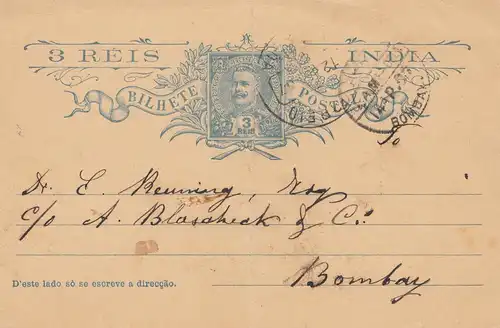 3 RÉIS INDIA
BILHETE POSTAL
3
REIS
BOMBAY
To
Dr. E. Reuning, Esq
C/o A. Blascheck & C.
Bombay
D'este lado só se escreve a direcção.